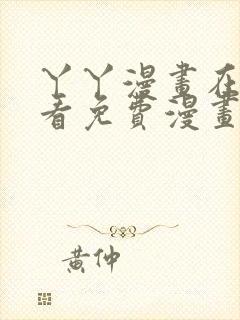 丫丫漫畫在
看免費漫畫
黃仲